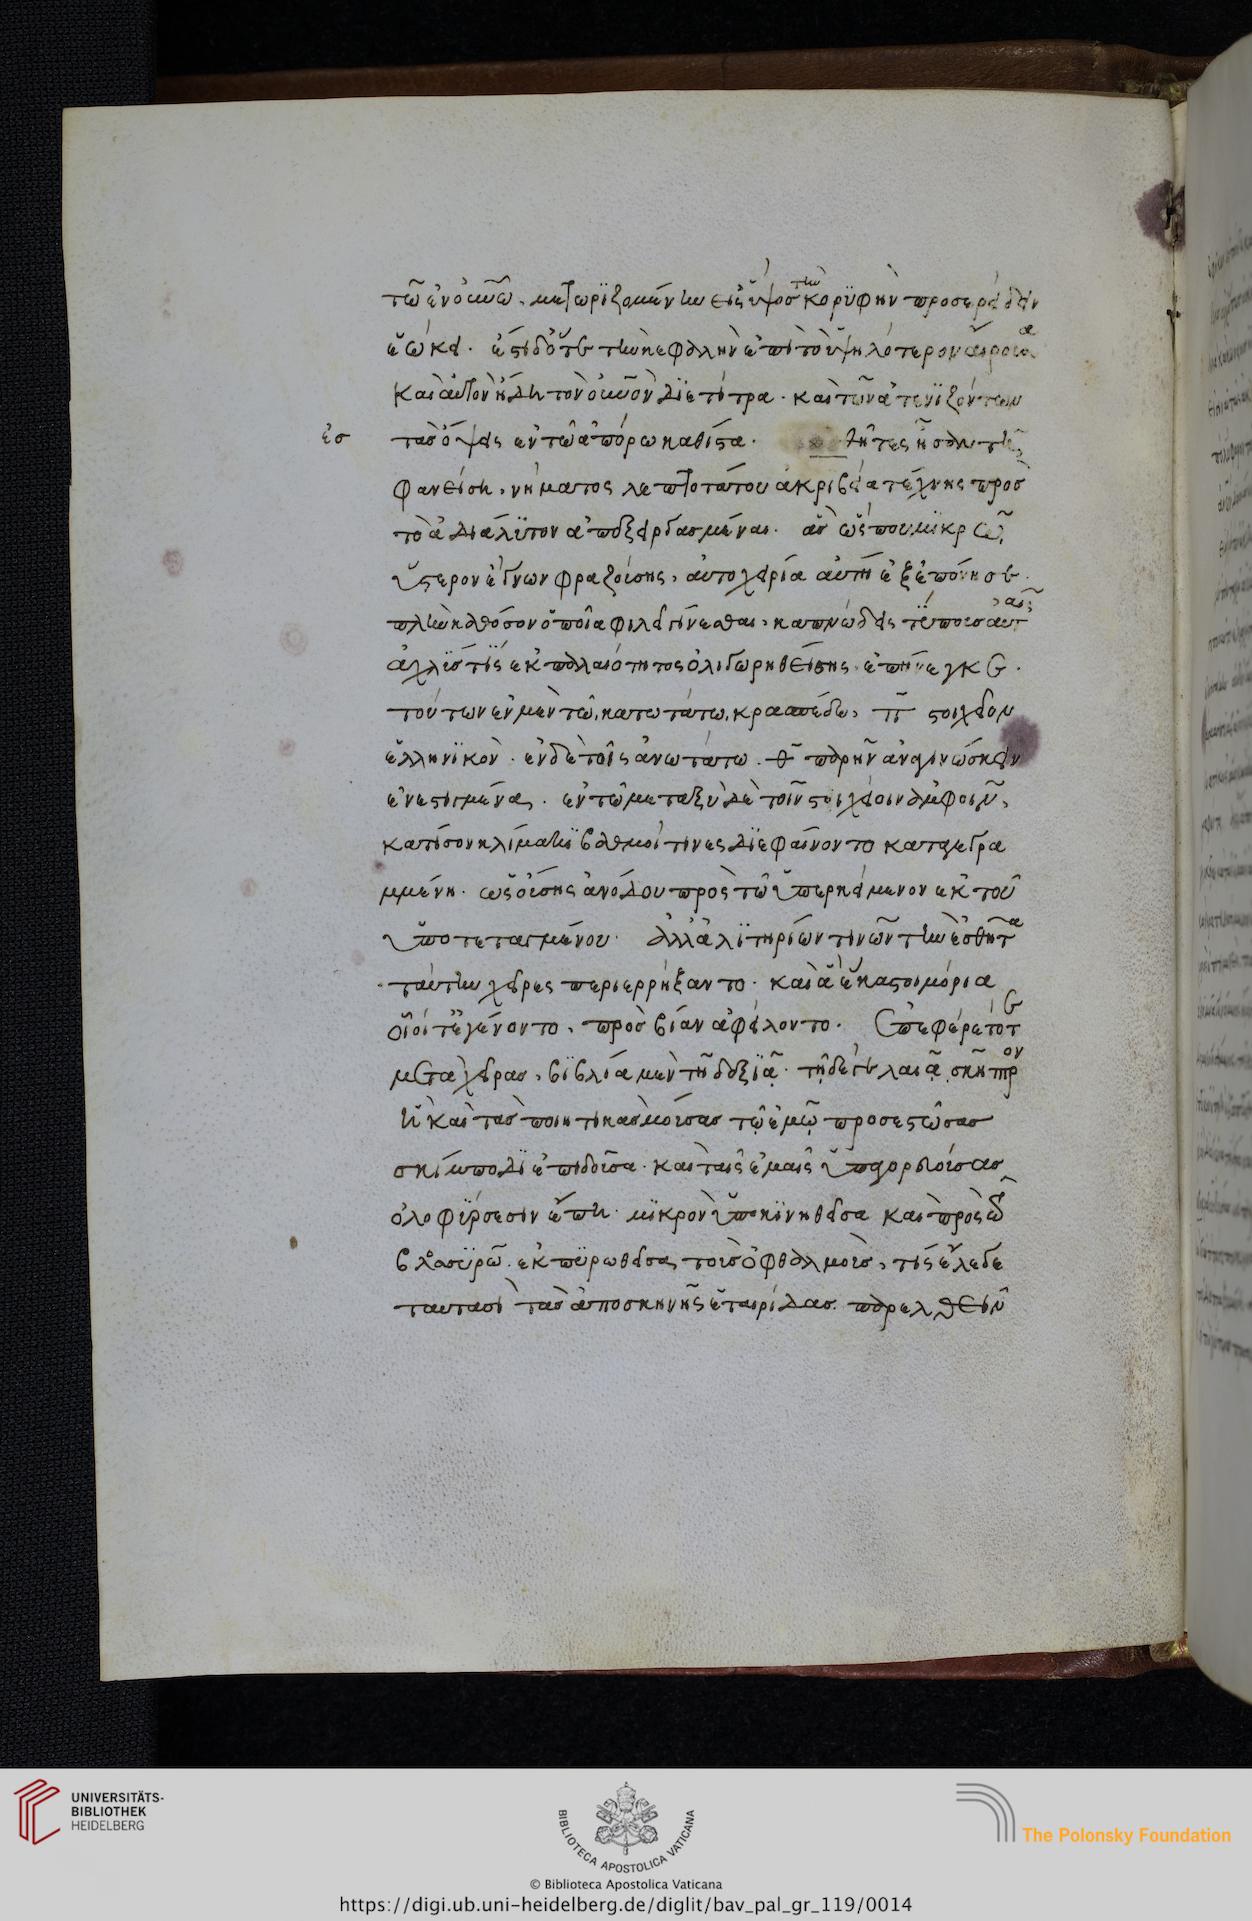 τῶ ἐν οὐνῶ. μετεωριζομένην εἰς ὕψος τὴν κορϋφὴν προσερείδειν
ἐώκει. ἔστι δ' ὅτε τὴν κεφαλὴν ἐπὶ τὸ ὑψηλότερον αἴρουσα
καὶ αὐτὸν ἤδη τὸν οὐνὸν διετίτρα. καὶ τῶν ἀτενϊζόντων
ἐσ
τὰσ ὄψεις ἐν τῶ ἀπόρω καθίστα. θῆτες ἦσαν τῆ
φανείση, νήματος λεπτοτάτου ἀκριβεία τέχνης πρὸσ
τὸ ἀδιάλϋτον ἀπεξειργασμέναι. ἃς ὥς που μϊκρῶ
ὕστερον ἔγνων φραζούσης, αὐτοχειρία αὐτὴ ἐξεπόνησε.
πλὴν καθόσον ὁποῖα φιλεῖ γίνεσθαι, καπνώδεις τύποισ αὐταῖς
ἀχλϋς τϊς ἐκ παλαιότητος ὀλιγωρηθείσης ἐπήνεγκε.
τούτων ἐν μὲν τῶ κατωτάτω κρασπέδω, π στοιχεῖον
ἑλληνϊκὸν. ἐν δὲ τοῖς ἀνωτάτω. θ παρῆν ἀναγινώσκειν
ἐνεστιγμένα. ἐν τῶ μεταξὺ δὲ τοῖν στοιχείοιν ἀμφοῖν,
κατίσον κλίματϊ βαθμοί τινες διεφαίνοντο καταγεγρα
μμένη. ὡς οὔσης ἀνόδου πρὸς τὸ ὑπερκείμενον ἐκ τοῦ
ὑποτεταγμένου. ἀλλ' ἀλϊτηρίων τινῶν τὴν ἐσθῆτα
ταύτην χεῖρες περιερρήξαντο. καὶ ἃ ἕκαστοι μόρια
οἷοί τ' ἐγένοντο, πρὸσ βίαν ἀφείλοντο. ἐπεφέρετό τε
μετὰ χεῖρασ, βϊβλία μὲν τῆ δεξϊᾷ. τῇ δέ γε λαιᾷ σκῆπτρον
ἣ καὶ τὰσ ποιητικὰσ μούσας τῷ ἐμῷ προσεστῶσασ
σκίμποδϊ ἐπιδοῦσα. καὶ ταῖς ἐμαῖς ὑπαγορευούσασ
ὀλοφϋρσεσιν ἔπη. μϊκρὸν ὑποκϊνηθεῖσα καὶ πρὸς
βλοσϋρῶ ἐκπϋρωθεῖσα, τοῖσ ὀφθαλμοῖσ, τίς εἴλεδε
ταυτασὶ τὰσ ἀπὸ σκηνῆς ἑταιρίδασ. παρελθεῖν
UNIVERSITÄTS-
BIBLIOTHEK
HEIDELBERG
BIBLIOTECA APOSTOLICA VATICANA
The Polonsky Foundation
© Biblioteca Apostolica Vaticana
https://digi.ub.uni-heidelberg.de/diglit/bav_pal_gr_119/0014